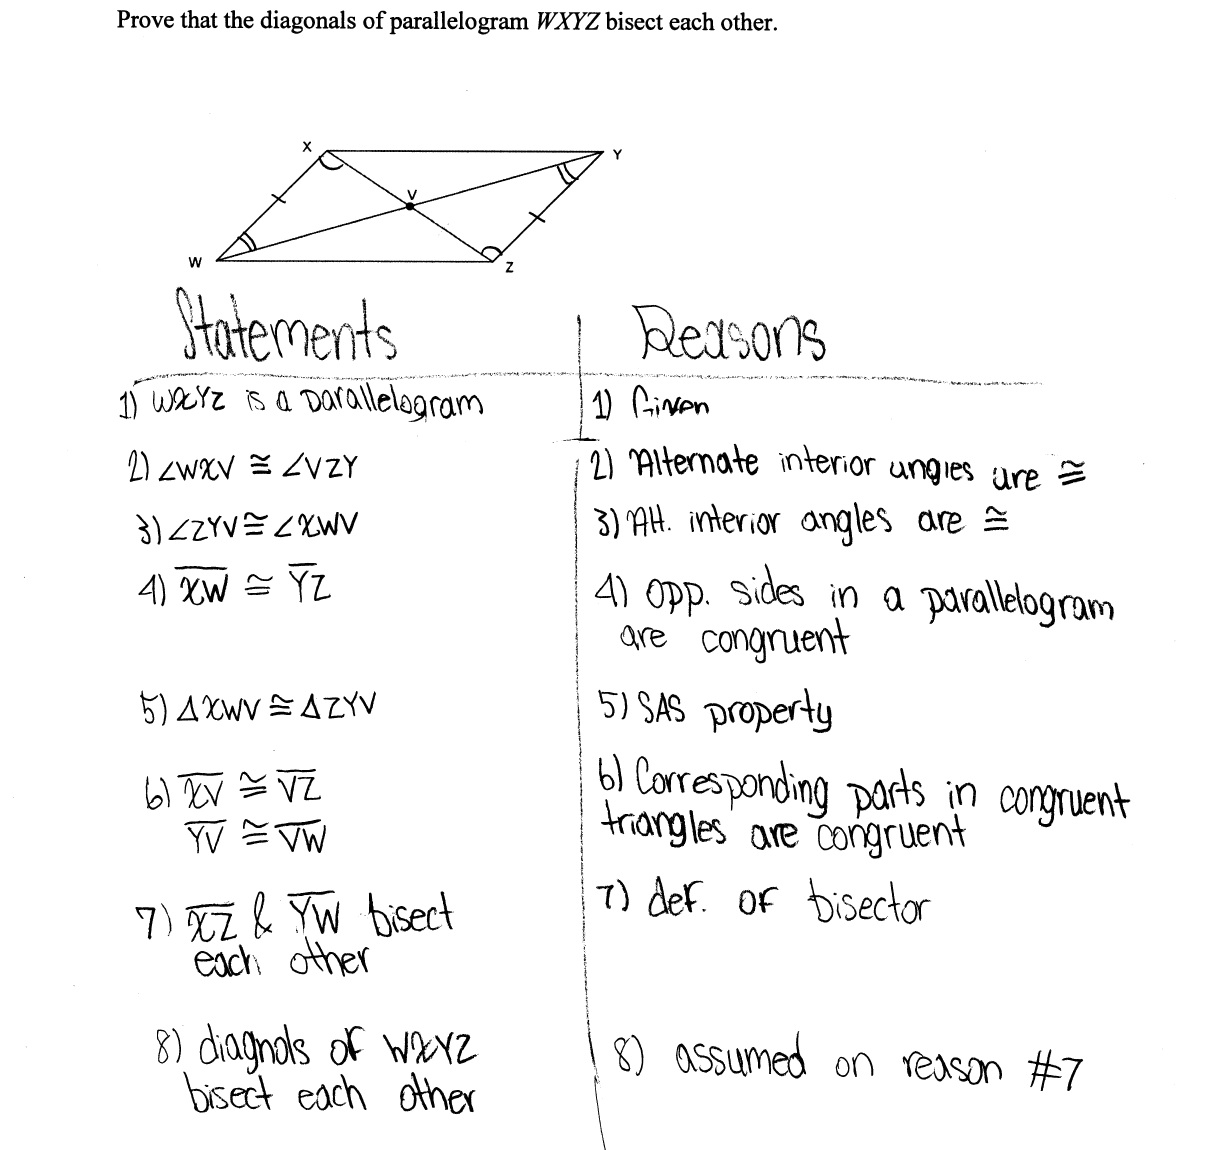 Prove that the diagonals of parallelogram WXYZ bisect each other.
X
Y
V
W
Z
Statements
Reasons
1) WXYZ is a parallelogram
1) Given
2) ∠WXV ≅ ∠VZY
2) Alternate interior angles are ≅
3) ∠ZYV ≅ ∠XWV
3) Alt. interior angles are ≅
4) X̅W̅ ≅ Y̅Z̅
4) Opp. sides in a parallelogram
are congruent
5) ΔXWV ≅ ΔZYV
5) SAS property
6) X̅V̅ ≅ V̅Z̅
Y̅V̅ ≅ V̅W̅
6) Corresponding parts in congruent
triangles are congruent
7) X̅Z̅ & Y̅W̅ bisect
each other
7) def. of bisector
8) diagnols of WXYZ
bisect each other
8) assumed on reason #7